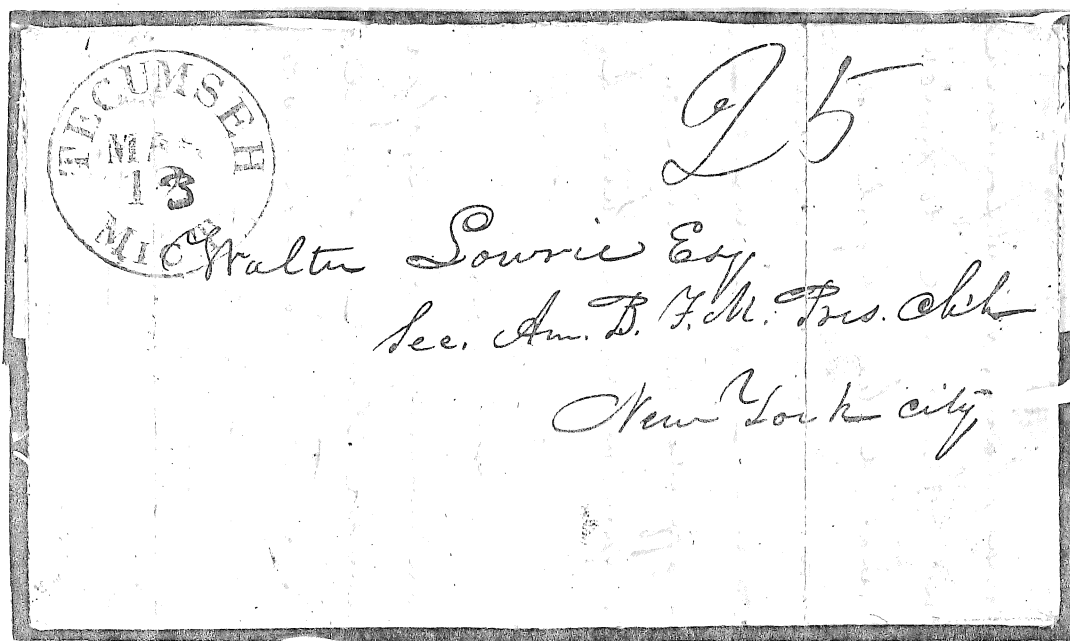 TECUMSEH
13
MICH
25
Walter Lowrie Esq
Sec. Am. B. F. M. Pres. Chh
New York city